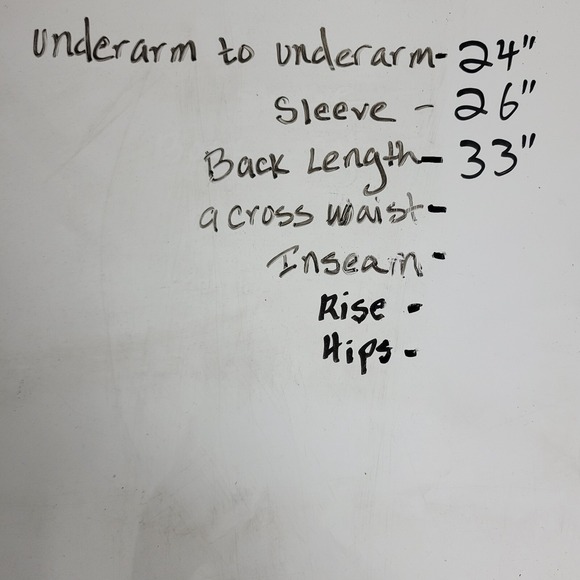 underarm to underarm- 24"
Sleeve - 26"
Back Length- 33"
across waist-
Inseam -
Rise -
Hips -